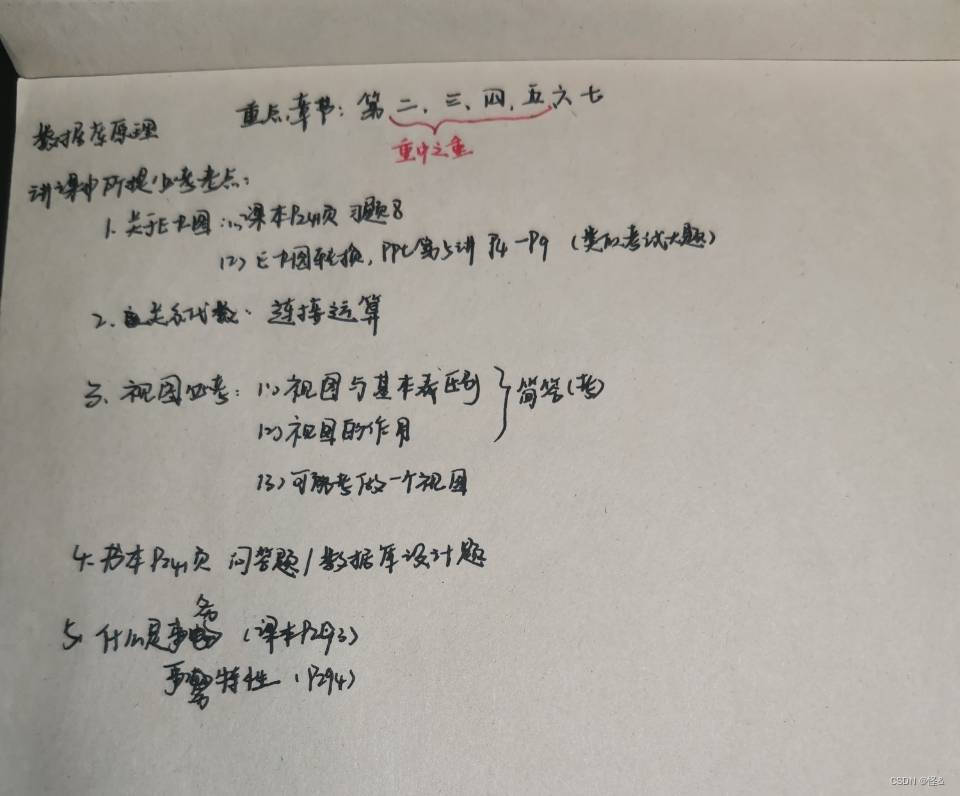 数据库原理
重点章节：第二、三、四、五六七
重中之重
讲课中所提必考考点：
1. 关于E-R图：(1)课本P241页 习题8
(2) E-R图转换，PPT第5讲 P4-P9 (类似考试大题)
2. 关系代数：连接运算
3. 视图必考：(1) 视图与基本表区别
(2) 视图的作用
简答(考)
(3) 可能考做一个视图
4. 书本P241页 问答题/数据库设计题
5. 什么是事务 (课本P293)
事务特性 (P294)
CSDN @怪&